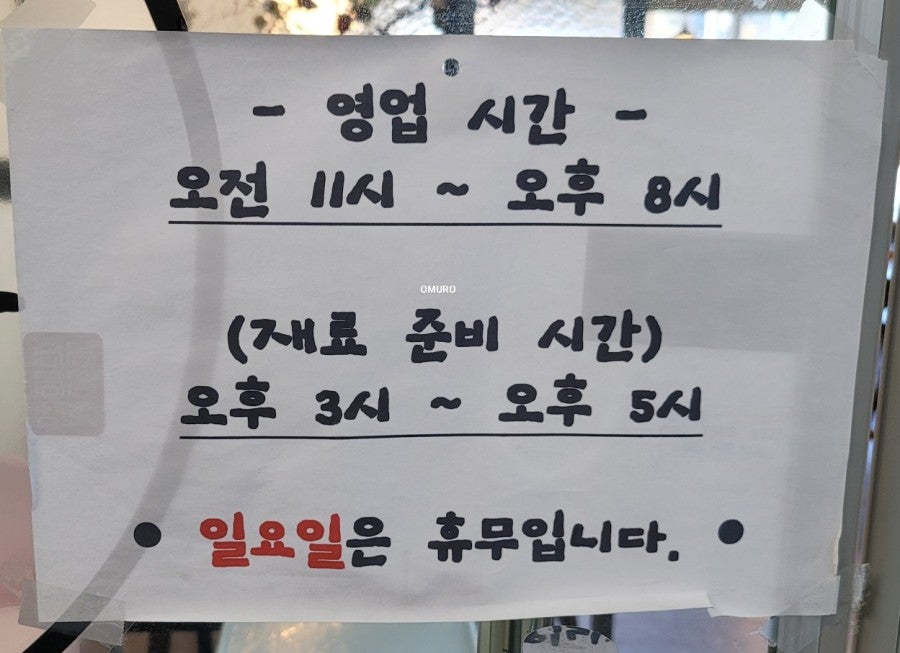 - 영업 시간 -
오전 11시 ~ 오후 8시
OMURO
(재료 준비 시간)
오후 3시 ~ 오후 5시
● 일요일은 휴무입니다. ●